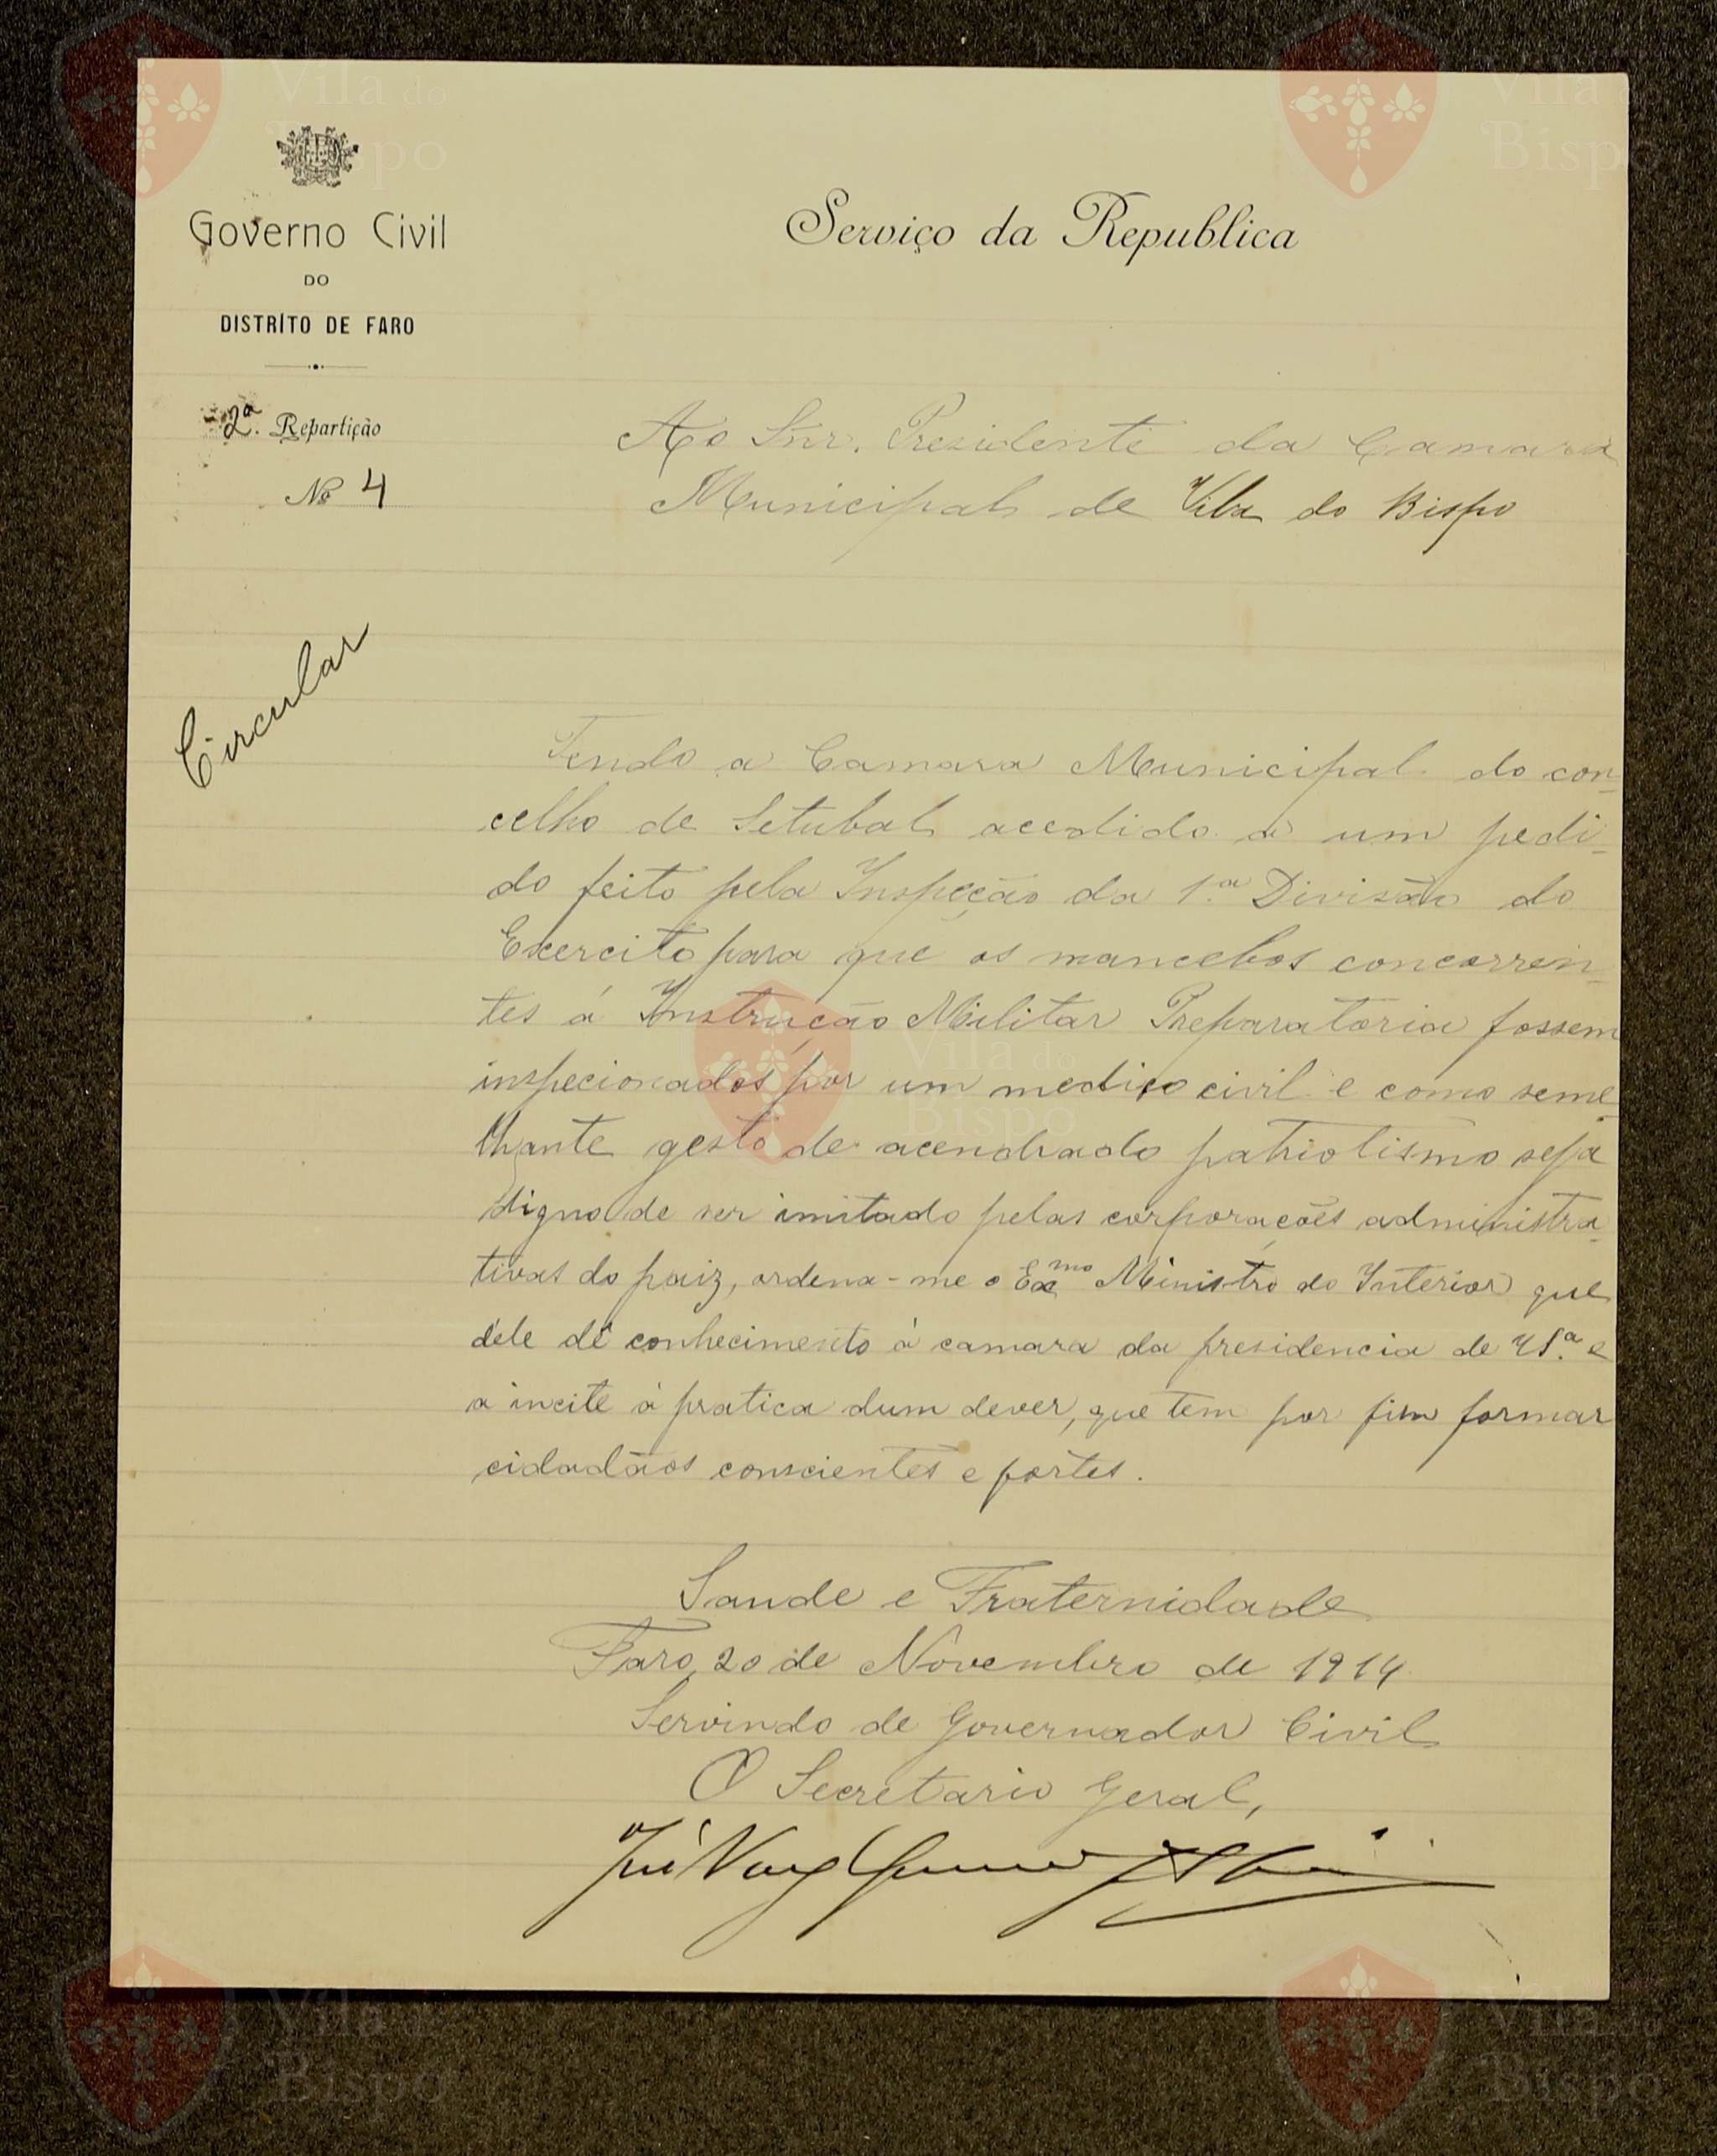 Governo Civil
DO
DISTRITO DE FARO
2ª Repartição
Nº 4
Serviço da Republica
Ao Snr. Presidente da Camara
Municipal de Vila do Bispo
Circular
Tendo a Camara Municipal do con-
celho de Setubal acedido a um pedi-
do feito pela Inspeção da 1.ª Divisão do
Exercito para que os mancebos concorren-
tes á Instrução Militar Preparatoria fossem
inspecionados por um medico civil e como seme-
lhante gesto de acendrado patriotismo seja
digno de ser imitado pelas corporações administra-
tivas do paiz, ordena-me o Exmo Ministro do Interior que
dele dê conhecimento á camara da presidencia de V. S.ª e
a incite á pratica dum dever, que tem por fim formar
cidadãos conscientes e fortes.
Saude e Fraternidade
Faro, 20 de Novembro de 1914
Servindo de Governador Civil
O Secretario Geral,
José Vaz
Vila do
Bispo